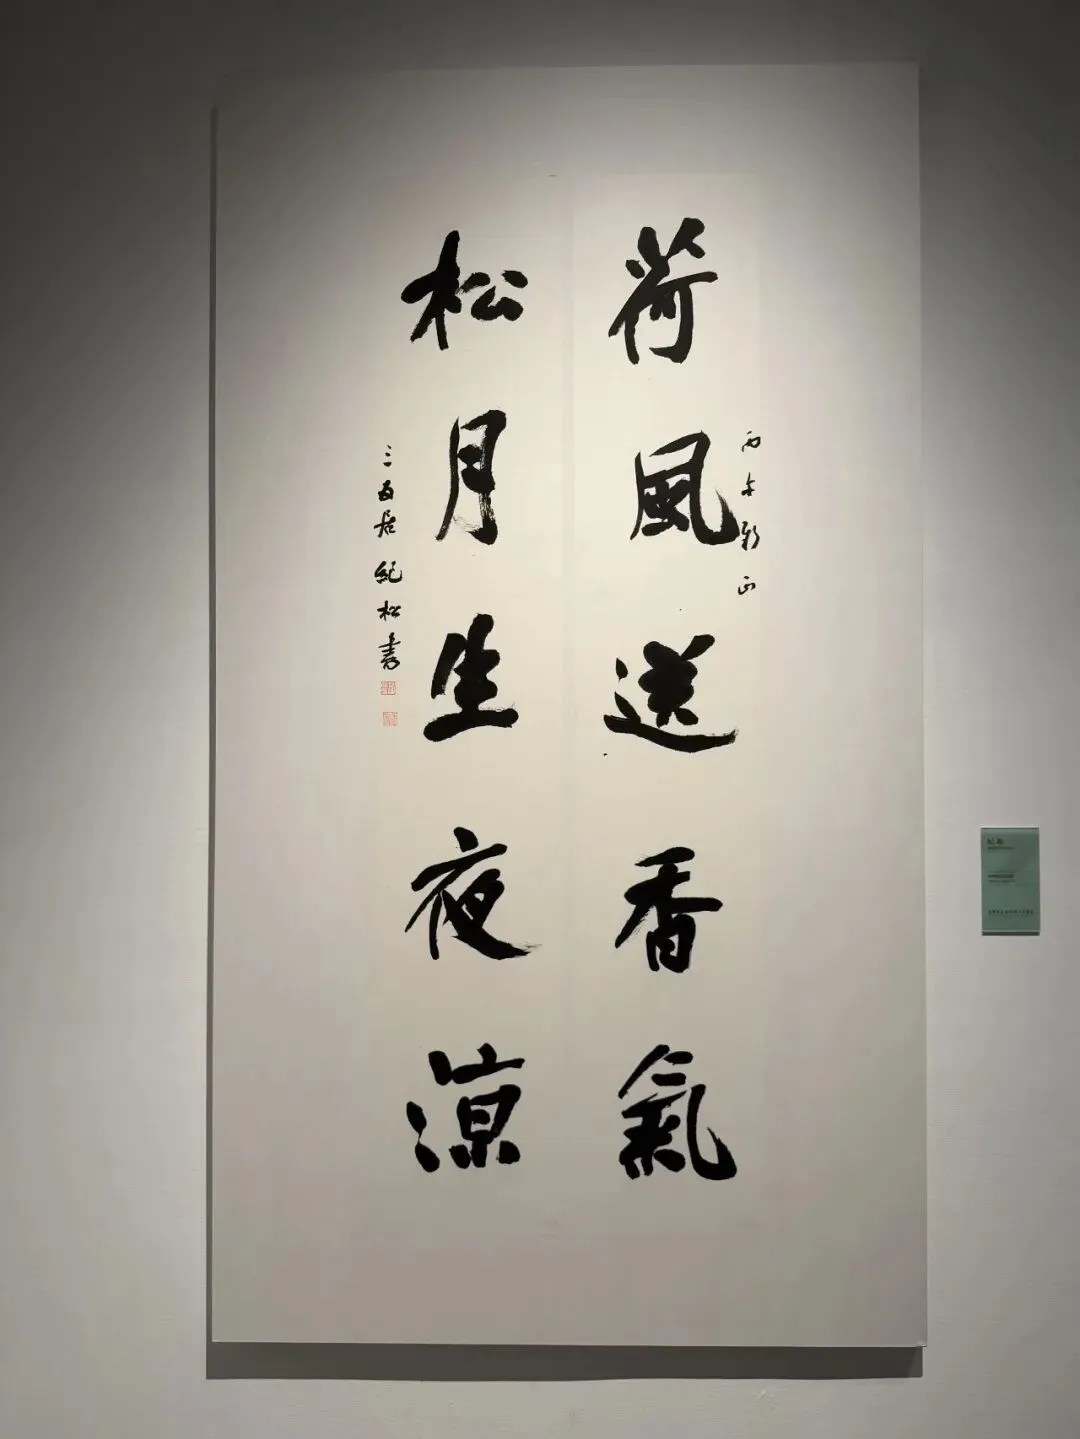 荷風送香氣
丙午新正
松月生夜涼
三百居 紀松書